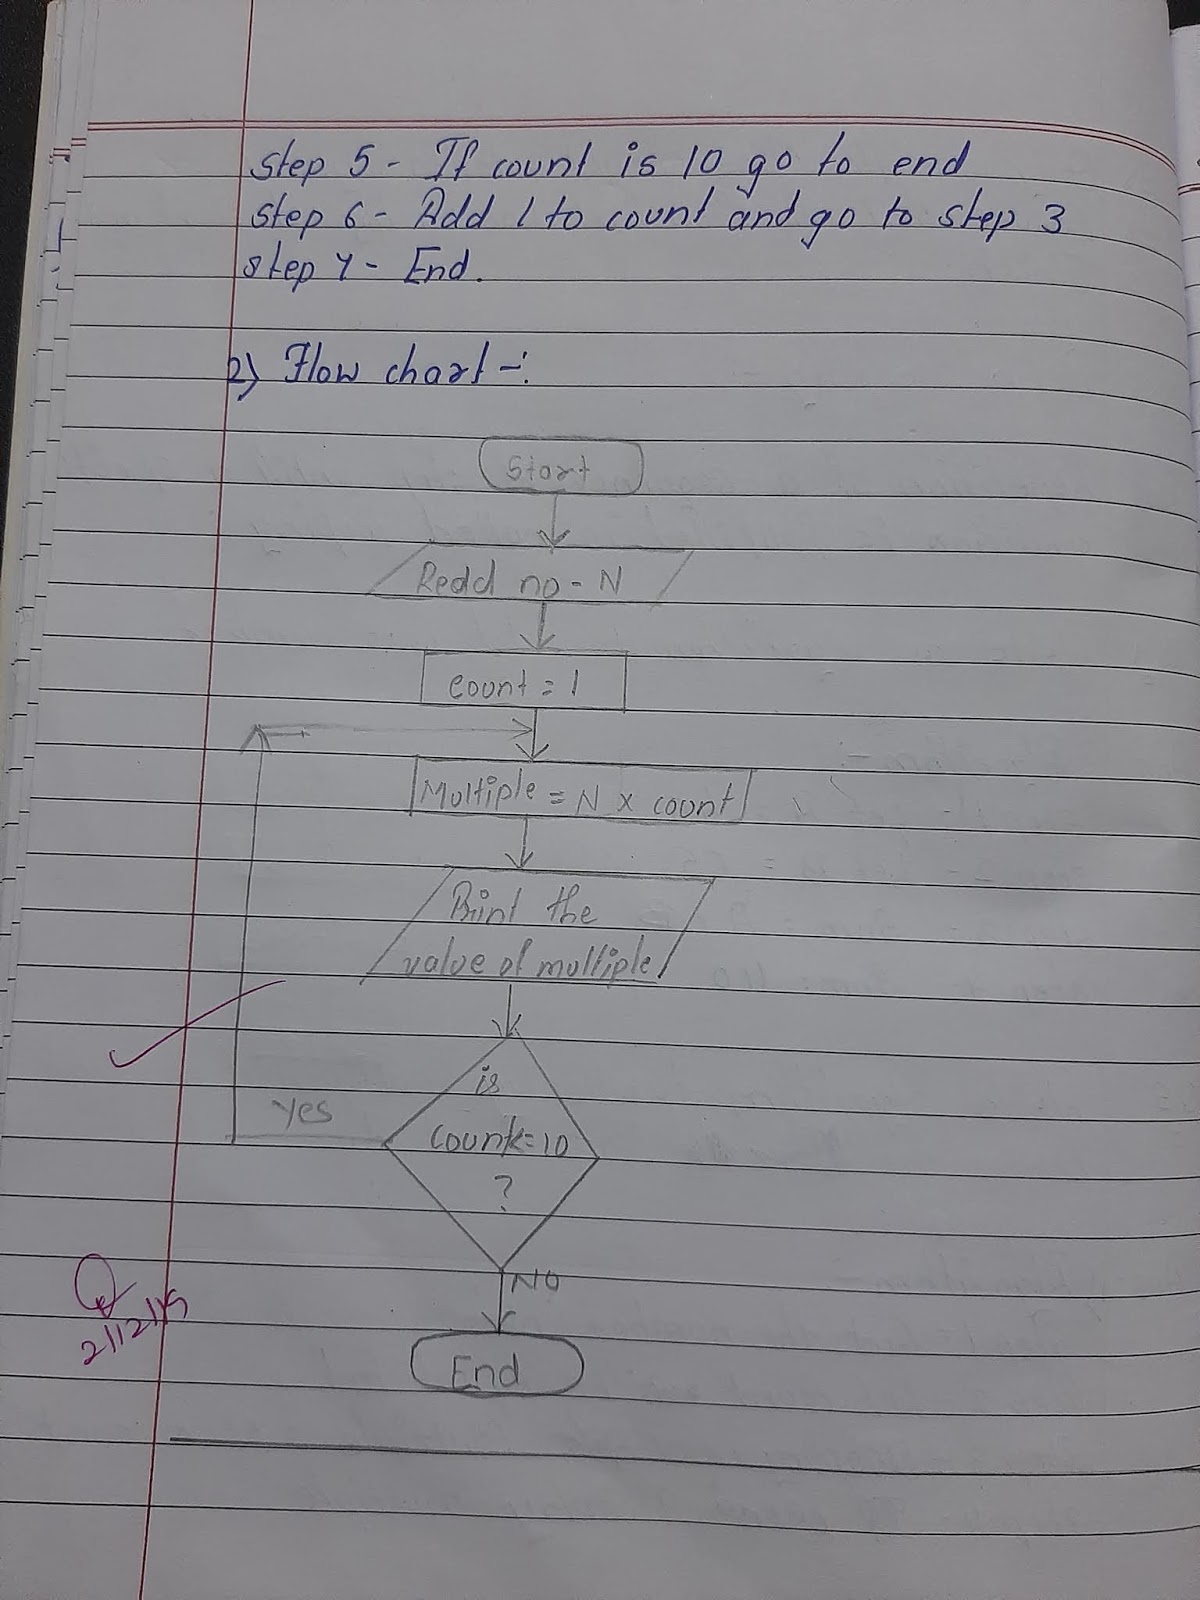 Step 5 - If count is 10 go to end
Step 6 - Add 1 to count and go to step 3
Step 7 - End.
2) Flow chart -:
Start
Read no - N
Count = 1
Multiple = N x count
Print the
value of multiple
is
Yes
Count<=10
?
NO
2/12/19
End